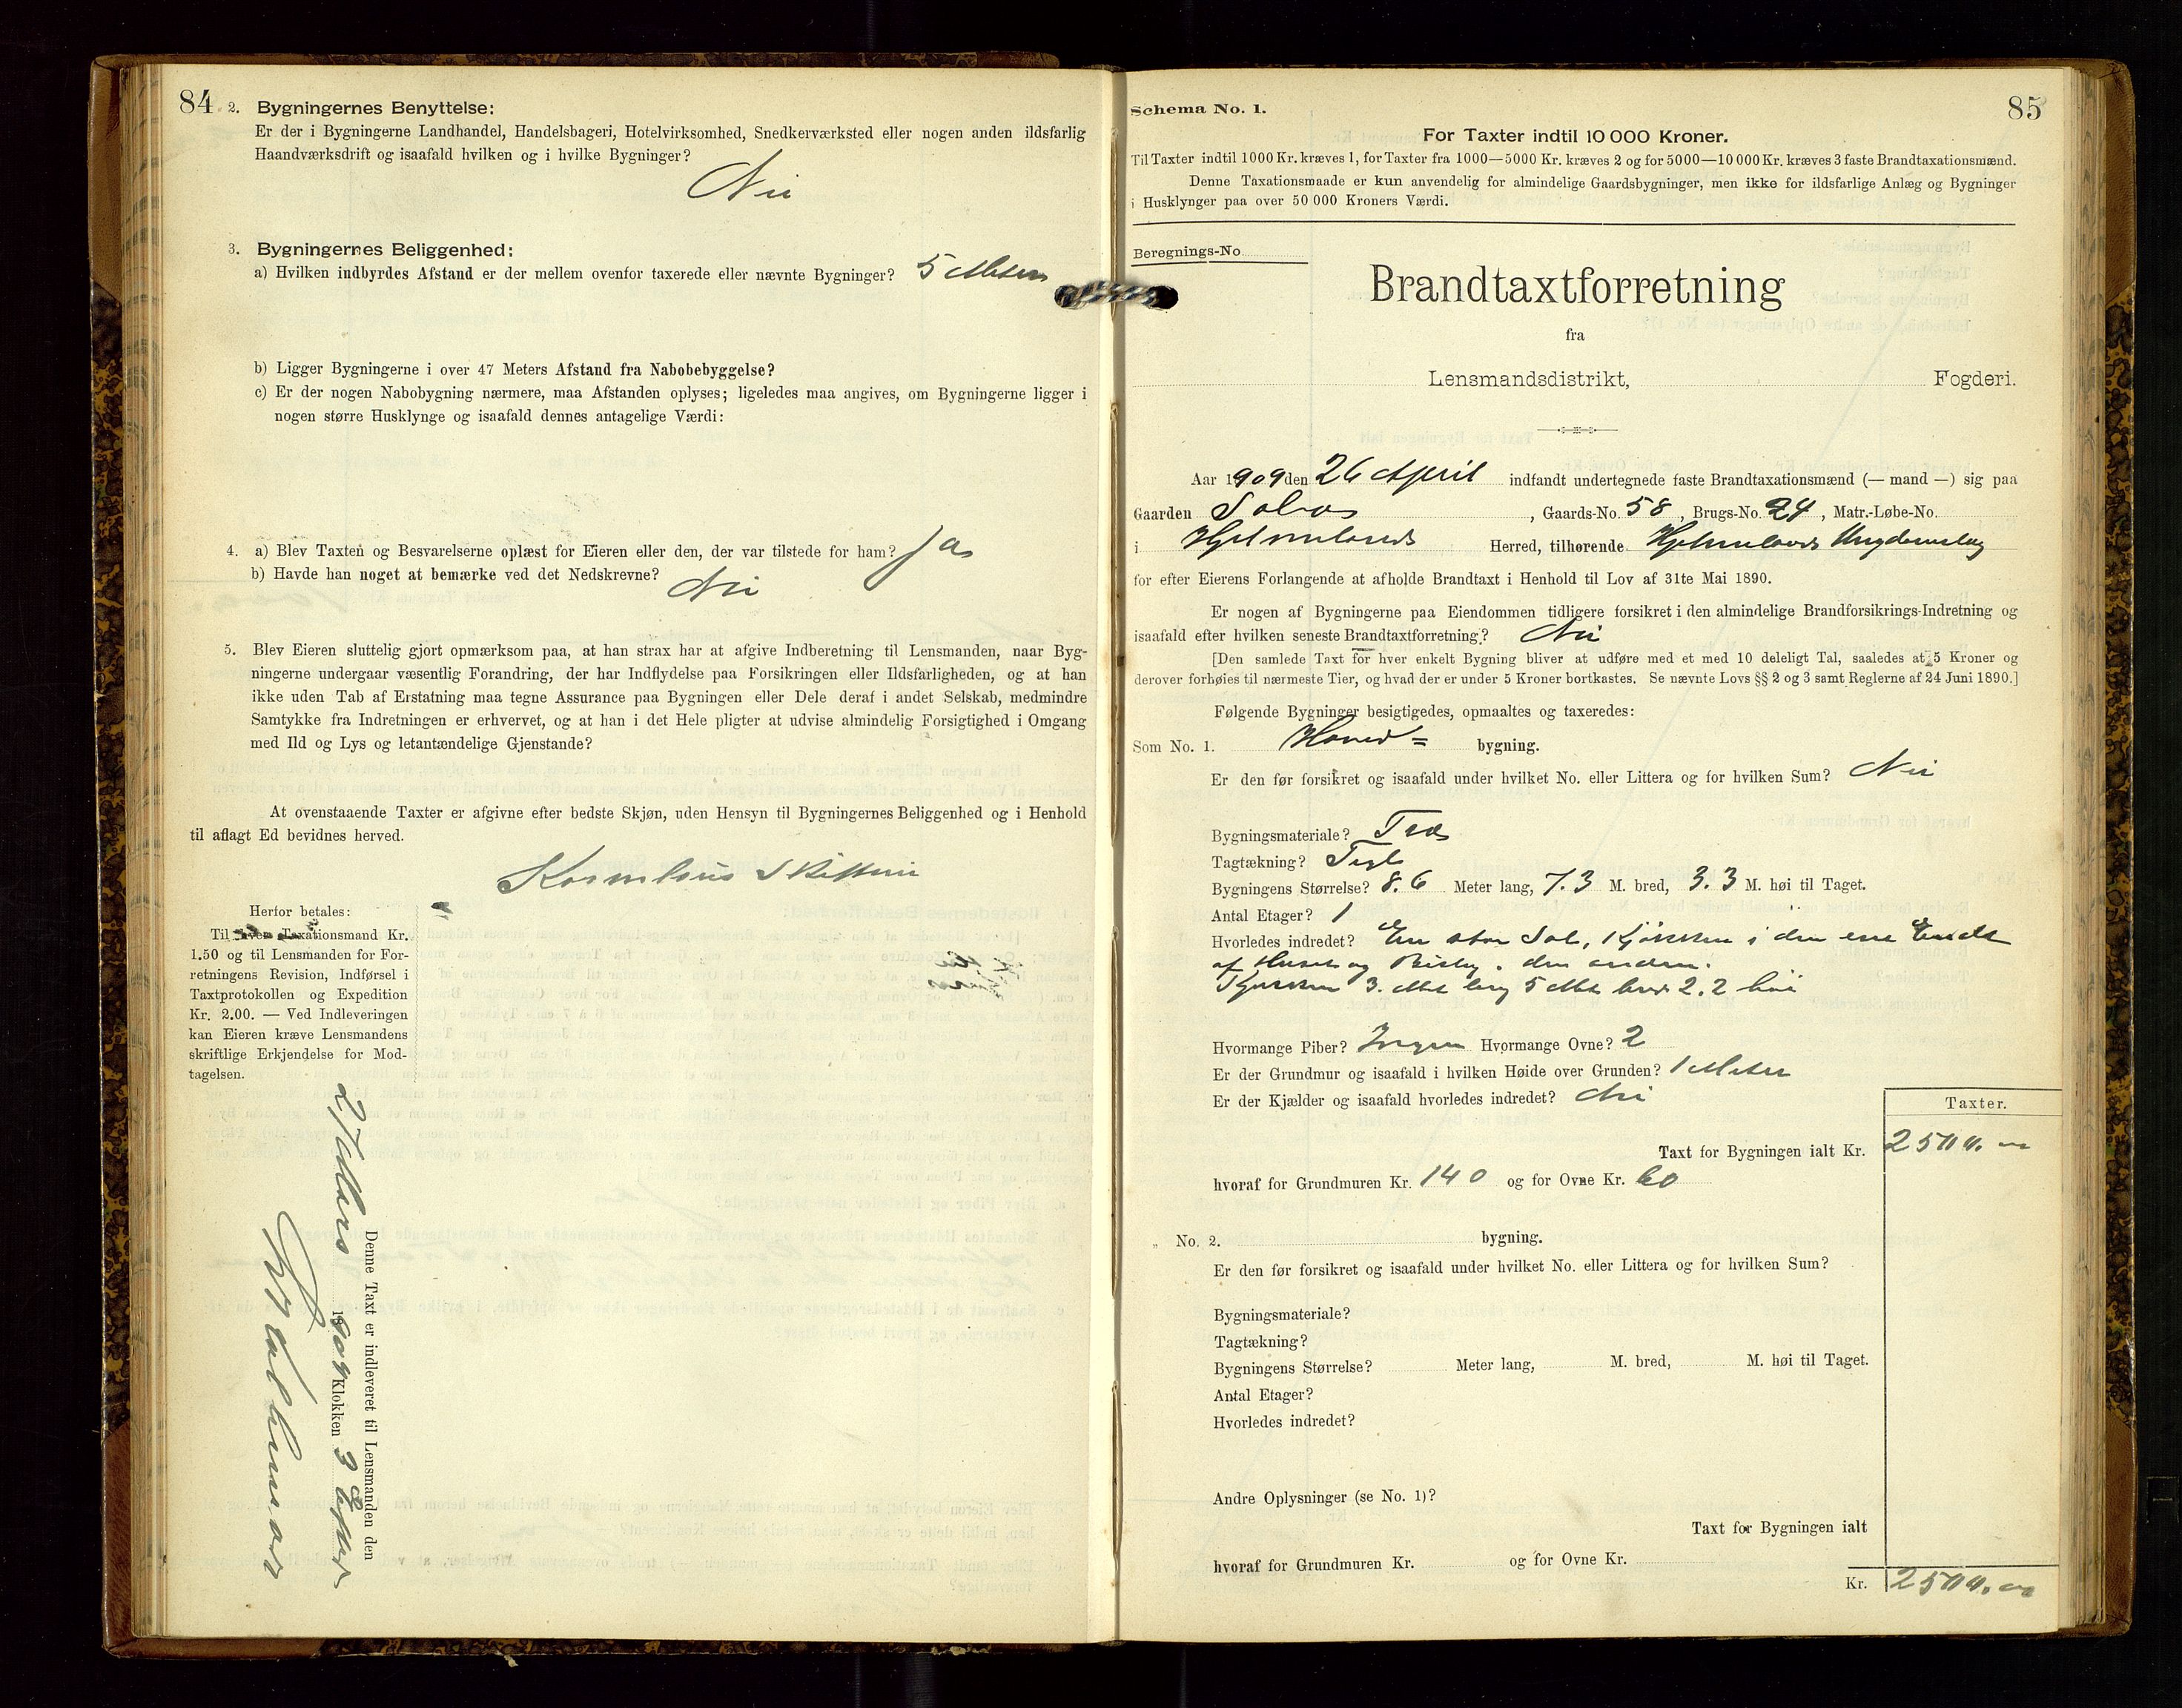 84
2. Bygningernes Benyttelse:
Er der i Bygningerne Landhandel, Handelsbageri, Hotelvirksomhed, Snedkerværksted eller nogen anden ildsfarlig
Haandværksdrift og isaafald hvilken og i hvilke Bygninger?
Nei
3. Bygningernes Beliggenhed:
a) Hvilken indbyrdes Afstand er der mellem ovenfor taxerede eller nævnte Bygninger? 5 Meter
b) Ligger Bygningerne i over 47 Meters Afstand fra Nabobebyggelse?
c) Er der nogen Nabobygning nærmere, maa Afstanden oplyses; ligeledes maa angives, om Bygningerne ligger i
nogen større Husklynge og isaafald dennes antagelige Værdi:
4. a) Blev Taxten og Besvarelserne oplæst for Eieren eller den, der var tilstede for ham? Ja
b) Havde han noget at bemærke ved det Nedskrevne? Nei
5. Blev Eieren sluttelig gjort opmærksom paa, at han strax har at afgive Indberetning til Lensmanden, naar Byg-
ningerne undergaar væsentlig Forandring, der har Indflydelse paa Forsikringen eller Ildsfarligheden, og at han
ikke uden Tab af Erstatning maa tegne Assurance paa Bygningen eller Dele deraf i andet Selskab, medmindre
Samtykke fra Indretningen er erhvervet, og at han i det Hele pligter at udvise almindelig Forsigtighed i Omgang
med Ild og Lys og letantændelige Gjenstande?
At ovenstaaende Taxter er afgivne efter bedste Skjøn, uden Hensyn til Bygningernes Beliggenhed og i Henhold
til aflagt Ed bevidnes herved.
Herfor betales:
Til hver Taxationsmand Kr.
1.50 og til Lensmanden for For-
retningens Revision, Indførsel i
Taxtprotokollen og Expedition
Kr. 2.00. — Ved Indleveringen
kan Eieren kræve Lensmandens
skriftlige Erkjendelse for Mod-
tagelsen.
Denne Taxt er indleveret til Lensmanden den
1909 Klokken 3 Efter
Schema No. 1.
85
For Taxter indtil 10 000 Kroner.
Til Taxter indtil 1000 Kr. kræves 1, for Taxter fra 1000—5000 Kr. kræves 2 og for 5000—10 000 Kr. kræves 3 faste Brandtaxationsmænd.
Denne Taxationsmaade er kun anvendelig for almindelige Gaardsbygninger, men ikke for ildsfarlige Anlæg og Bygninger
i Husklynger paa over 50 000 Kroners Værdi.
Beregnings-No
Brandtaxtforretning
fra
Lensmandsdistrikt, Fogderi.
Aar 1909 den 26 April indfandt undertegnede faste Brandtaxationsmænd (— mand —) sig paa
Gaarden , Gaards-No. 58, Brugs-No. 24, Matr.-Løbe-No.
i Hjelmelands Herred, tilhørende Hjelmelands Ungdomslag
for efter Eierens Forlangende at afholde Brandtaxt i Henhold til Lov af 31te Mai 1890.
Er nogen af Bygningerne paa Eiendommen tidligere forsikret i den almindelige Brandforsikrings-Indretning og
isaafald efter hvilken seneste Brandtaxtforretning? Nei
[Den samlede Taxt for hver enkelt Bygning bliver at udføre med et med 10 deleligt Tal, saaledes at 5 Kroner og
derover forhøies til nærmeste Tier, og hvad der er under 5 Kroner bortkastes. Se nævnte Lovs §§ 2 og 3 samt Reglerne af 24 Juni 1890.]
Følgende Bygninger besigtigedes, opmaaltes og taxeredes:
Som No. 1. Hoved= bygning.
Er den før forsikret og isaafald under hvilket No. eller Littera og for hvilken Sum? Nei
Bygningsmateriale? Træ
Tagtækning? Tegl
Bygningens Størrelse? 8.6 Meter lang, 7.3 M. bred, 3.3 M. høi til Taget.
Antal Etager? 1
Hvorledes indredet? En stor Sal, Kjøkken i den ene Ende
af Huset og i den anden.
Kjøkken 3. Met lang 5 Met bred 2.2 høi
Hvormange Piber? Ingen Hvormange Ovne? 2
Er der Grundmur og isaafald i hvilken Høide over Grunden? 1 Meter
Er der Kjælder og isaafald hvorledes indredet? Nei
Taxter.
Taxt for Bygningen ialt Kr. 2500.00
hvoraf for Grundmuren Kr. 140 og for Ovne Kr. 60
„ No. 2. bygning.
Er den før forsikret og isaafald under hvilket No. eller Littera og for hvilken Sum?
Bygningsmateriale?
Tagtækning?
Bygningens Størrelse? Meter lang, M. bred, M. høi til Taget.
Antal Etager?
Hvorledes indredet?
Andre Oplysninger (se No. 1)?
Taxt for Bygningen ialt
hvoraf for Grundmuren Kr. og for Ovne Kr.
Kr. 2500.00